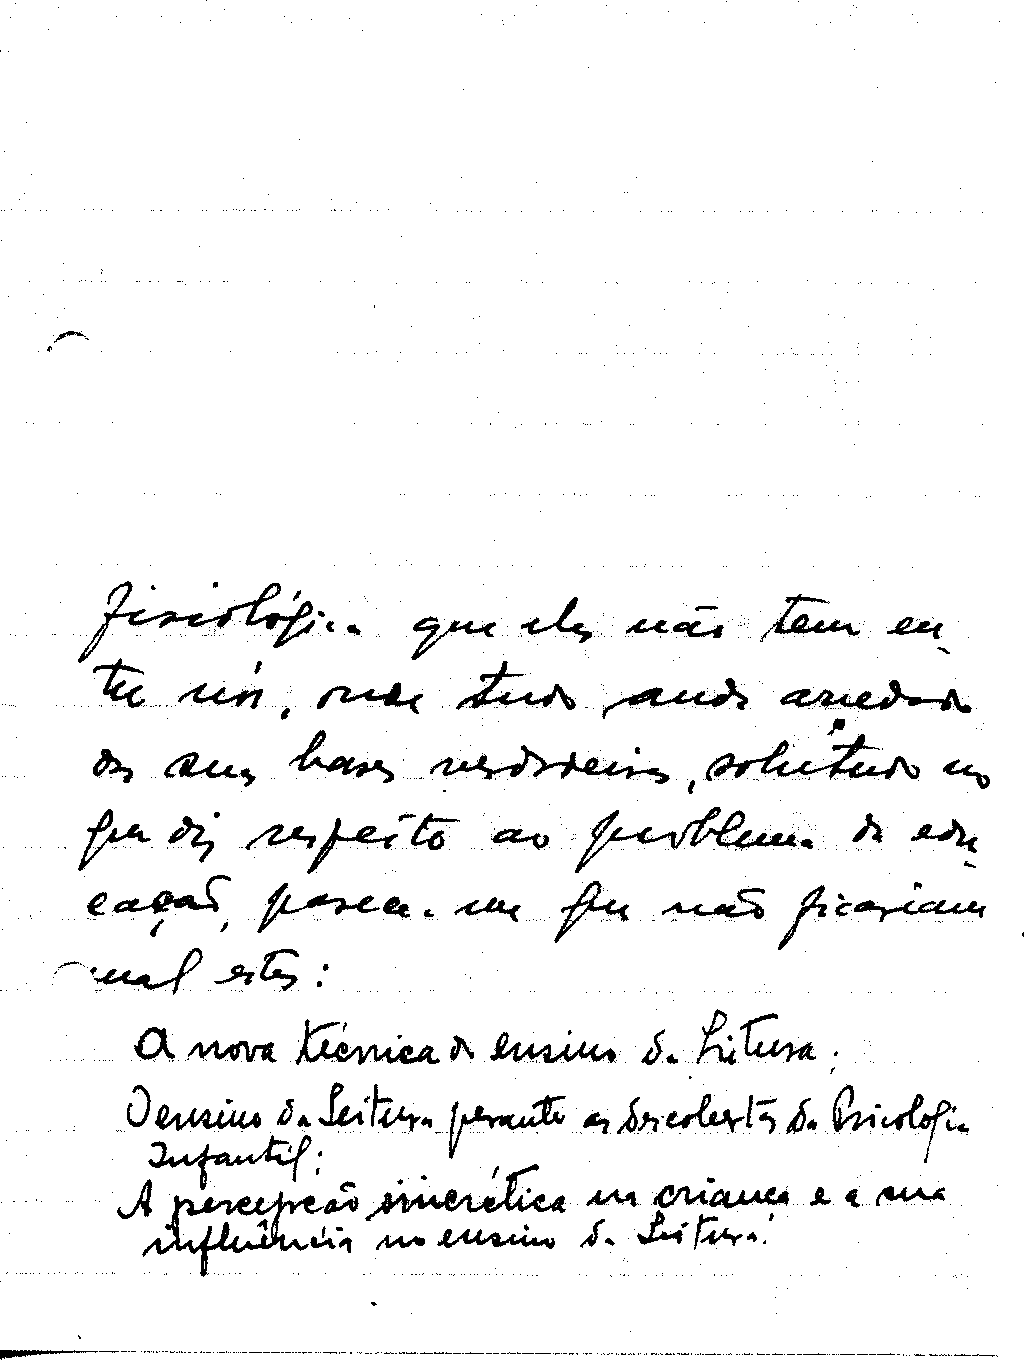 fisiológica que eles não tem en-
tre nós, onde tudo anda arredado
das suas bases verdadeiras, sobretudo no
que diz respeito ao problema da edu-
cação, parece-me que não ficariam
mal estes:
A nova técnica do ensino da Leitura;
O ensino da Leitura perante as descobertas da Psicologia
Infantil;
A percepção sincrética na criança e a sua
influência no ensino da Leitura.